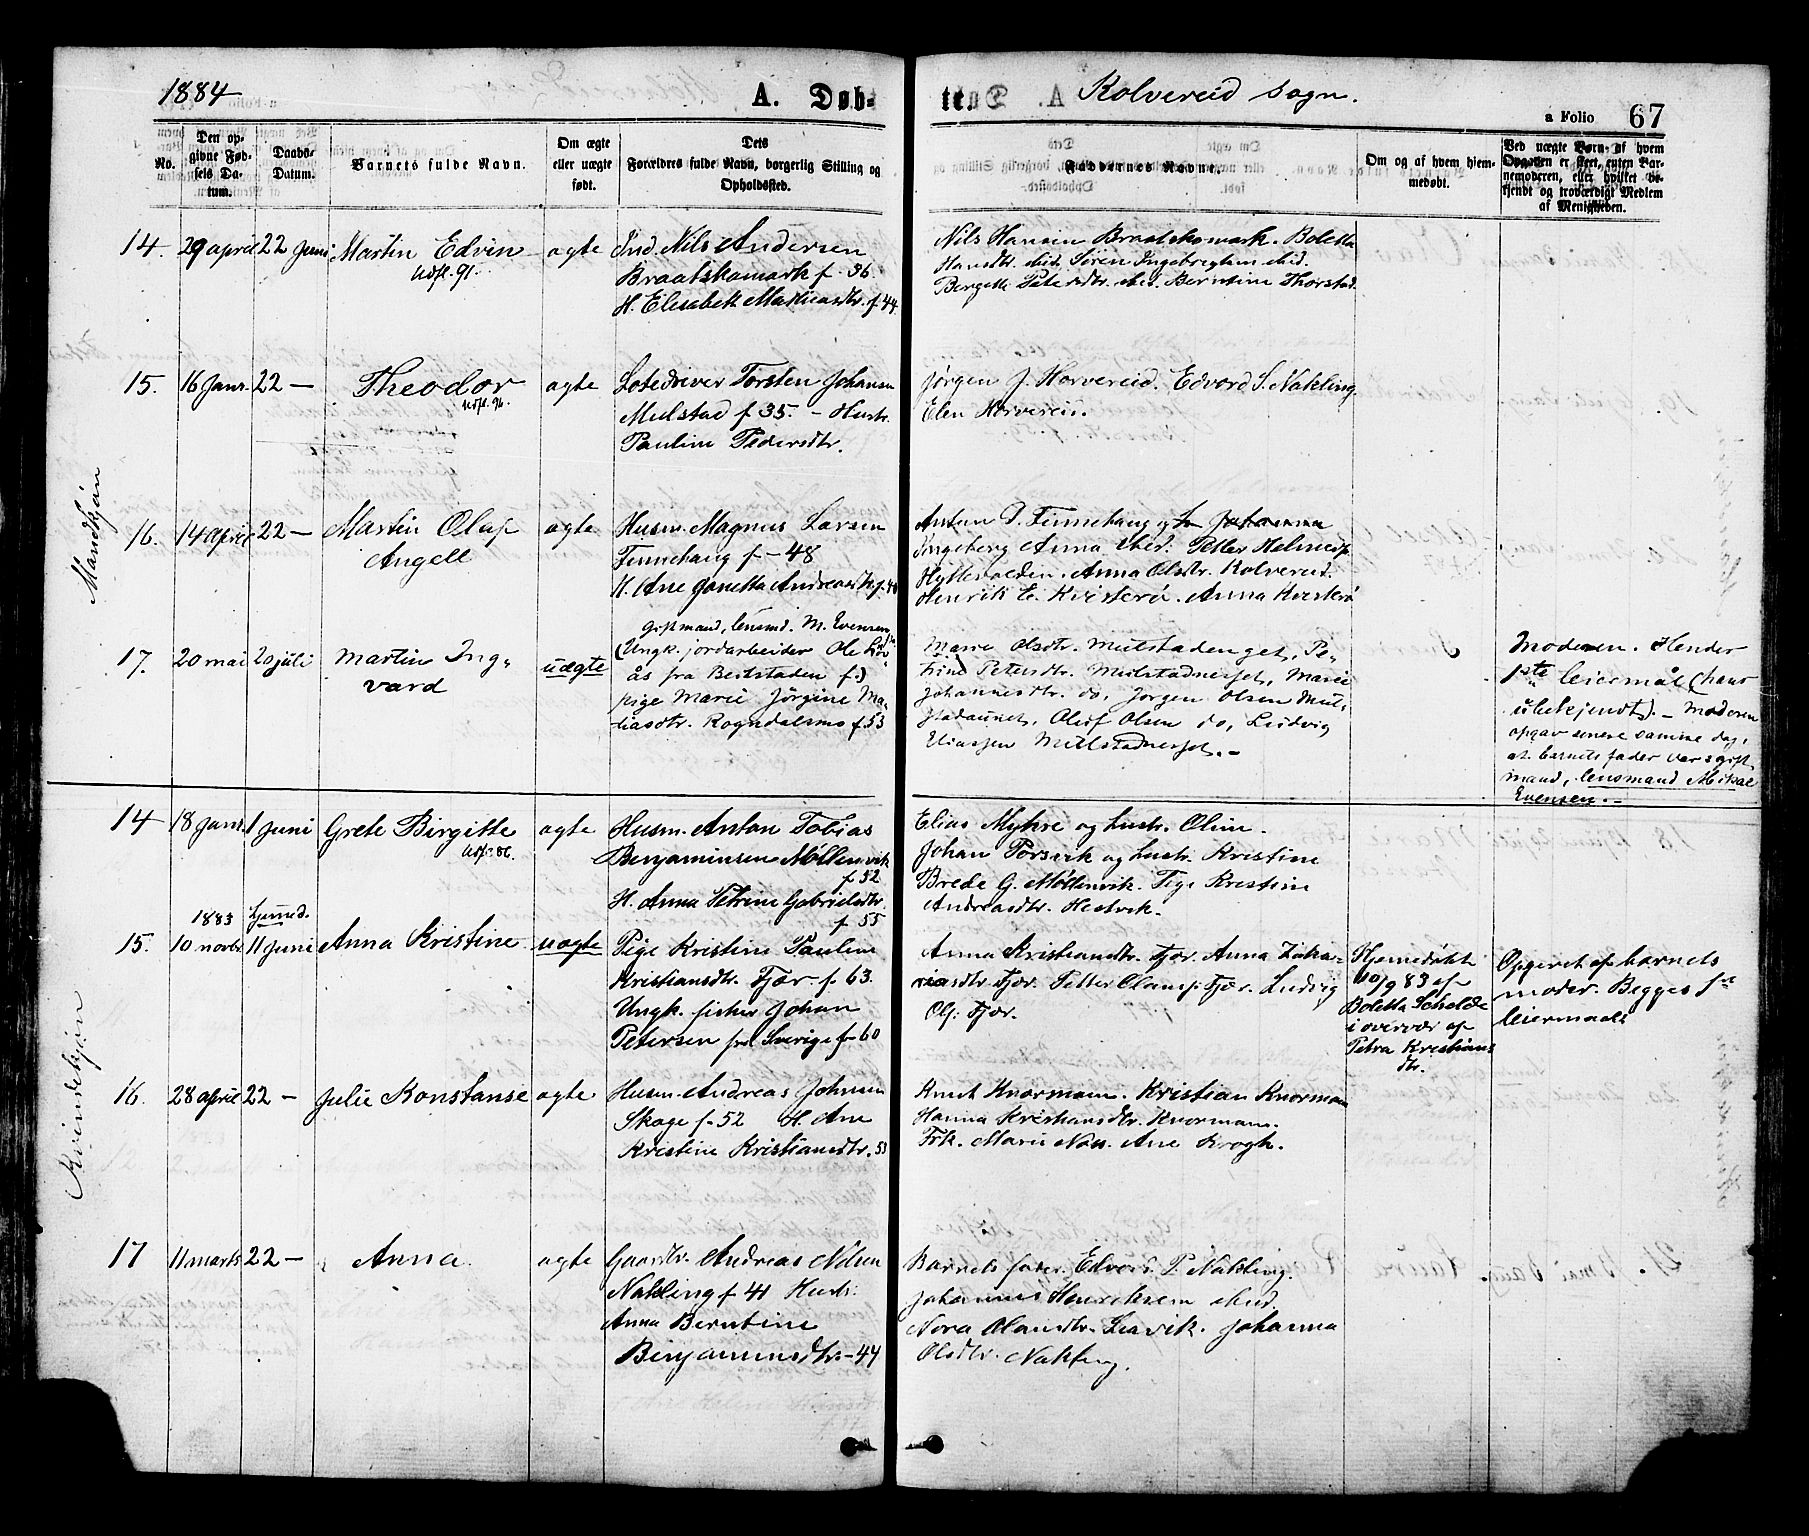 1884
A. Døb-
te.
Kolvereid sogn.
a Folio 67
No.
Den op-
givne Fød-
sels Da-
tum.
Daabs-
Datum.
Barnets fulde Navn.
Om ægte
eller uægte
født.
Dets
Forældres fulde Navn, borgerlig Stilling og
Opholdssted.
Faddernes Navne.
Om og af hvem hjem-
medøbt.
Ved uægte Børn- af hvem
Opgaven er skeet, enten Bar-
nemoderen, eller hvilket be-
kjendt og troværdigt Medlem
af Menigheden.
Mandkjøn
14. 29 april 22 Juni Martin Edvin ægte Ind. Nils Andersen
Braatskamark f. 36
H. Elisabeth Mathiasdtr. f. 44
Nils Hansen Braatskamark. Boletta
Hansdtr. ibid. Sören Ingebrigtsen ibid.
Bergette Petersdtr. ibid. Berntine Thorstad.
15. 16 Janr. 22 — Theodor ægte
Torsten Johansen
Mulstad f 35. – Hustr.
Pauline Pedersdtr.
Jørgen J. Horvereid. Edvard S. Nakling.
Elen Horvereid.
16. 14 april 22 — Martin Oluf
Angell
ægte Husm. Magnus Larsen
Finnehaug f – 48
H. Ane Janetta Andreasdtr. f. 48
Anton D. Finnehaug og h. Johanna
Ingeberg Anna ibid. Petter Helmers.
Anna Olsdtr. Kolvereid.
Henrik E. Kvisterø. Anna Kvisterø
17. 20 mai 20 juli Martin Ing-
vard
uægte
Giftmand, lensmd. M. Evensen
(Ungk. jordarbeider Ole
ås fra Beitstaden f.)
pige Marie Jörgine Ma-
tiasdtr. Rogndalsmo f. 53
Marie Olsdtr. Mulstadenget, Pe-
trine Petersdtr. Mulstadnesset, Marie
Johannesdtr. do, Jørgen Olsen Mul-
stadaunet, Oluf Olsen do, Ludvig
Eliassen Mulstadnesset. –
Moderen. Hendes
1ste leiermål (hans
ubekjendt). – Moderen
opgav senere samme dag,
at barnets fader var gift
mand, lensmand Mikal
Evensen. –
Kvindekjøn
14 18 Janr. 1 Juni Grete Birgitte ægte Husm. Anton Tobias
Benjaminsen Möllenvik
f 52
H. Anna Petrine Gabrielsdtr.
f 55
Elias Myhre og hustr. Oline.
Johan Forsvik og hustr. Kristine
Brede G. Møllenvik. Pige Kristine
Andreasdtr. Hestvik.
15.
1883
10 novbr. 11 Juni Anna Kristine uægte Pige Kristine Pauline
Kristiansdtr. Fjær. f 63.
Ungk. fisker Johan
Petersen fra Sverige f – 60
Anna Kristiansdtr. Fjær. Anna Zaka-
riasdtr. Fjær. Petter Olausf. Fjær. Ludvig
Ols. Fjær.
Hjemedøbt
10/9 83 af
Boletta Schelde
i overvær af
Petra Kristians
dtr.
Opgivet af barnets
moder. Begges 1ste
leiermaal
16. 28 april 22 — Julie Konstanse ægte Husm. Andreas Johnsen
Skage f – 52 H. Ane
Kristine Kristiansdtr. 53
Knut Knorman. Kristian Knorman
Hanna Kristiansdtr. Knorman.
Frk. Marie Ane Krogh.
17 11 marts 22 — Anna. ægte Gaardbr. Andreas Nilsen
Nakling f 41 Hustr.
Anna Berntine
Benjaminsdtr. – 44
Barnets fader. Edvard P. Nakling.
Johannes Henriksen ibid.
Nora Olausdtr. Leavik. Johanna
Olsdtr. Nakling.